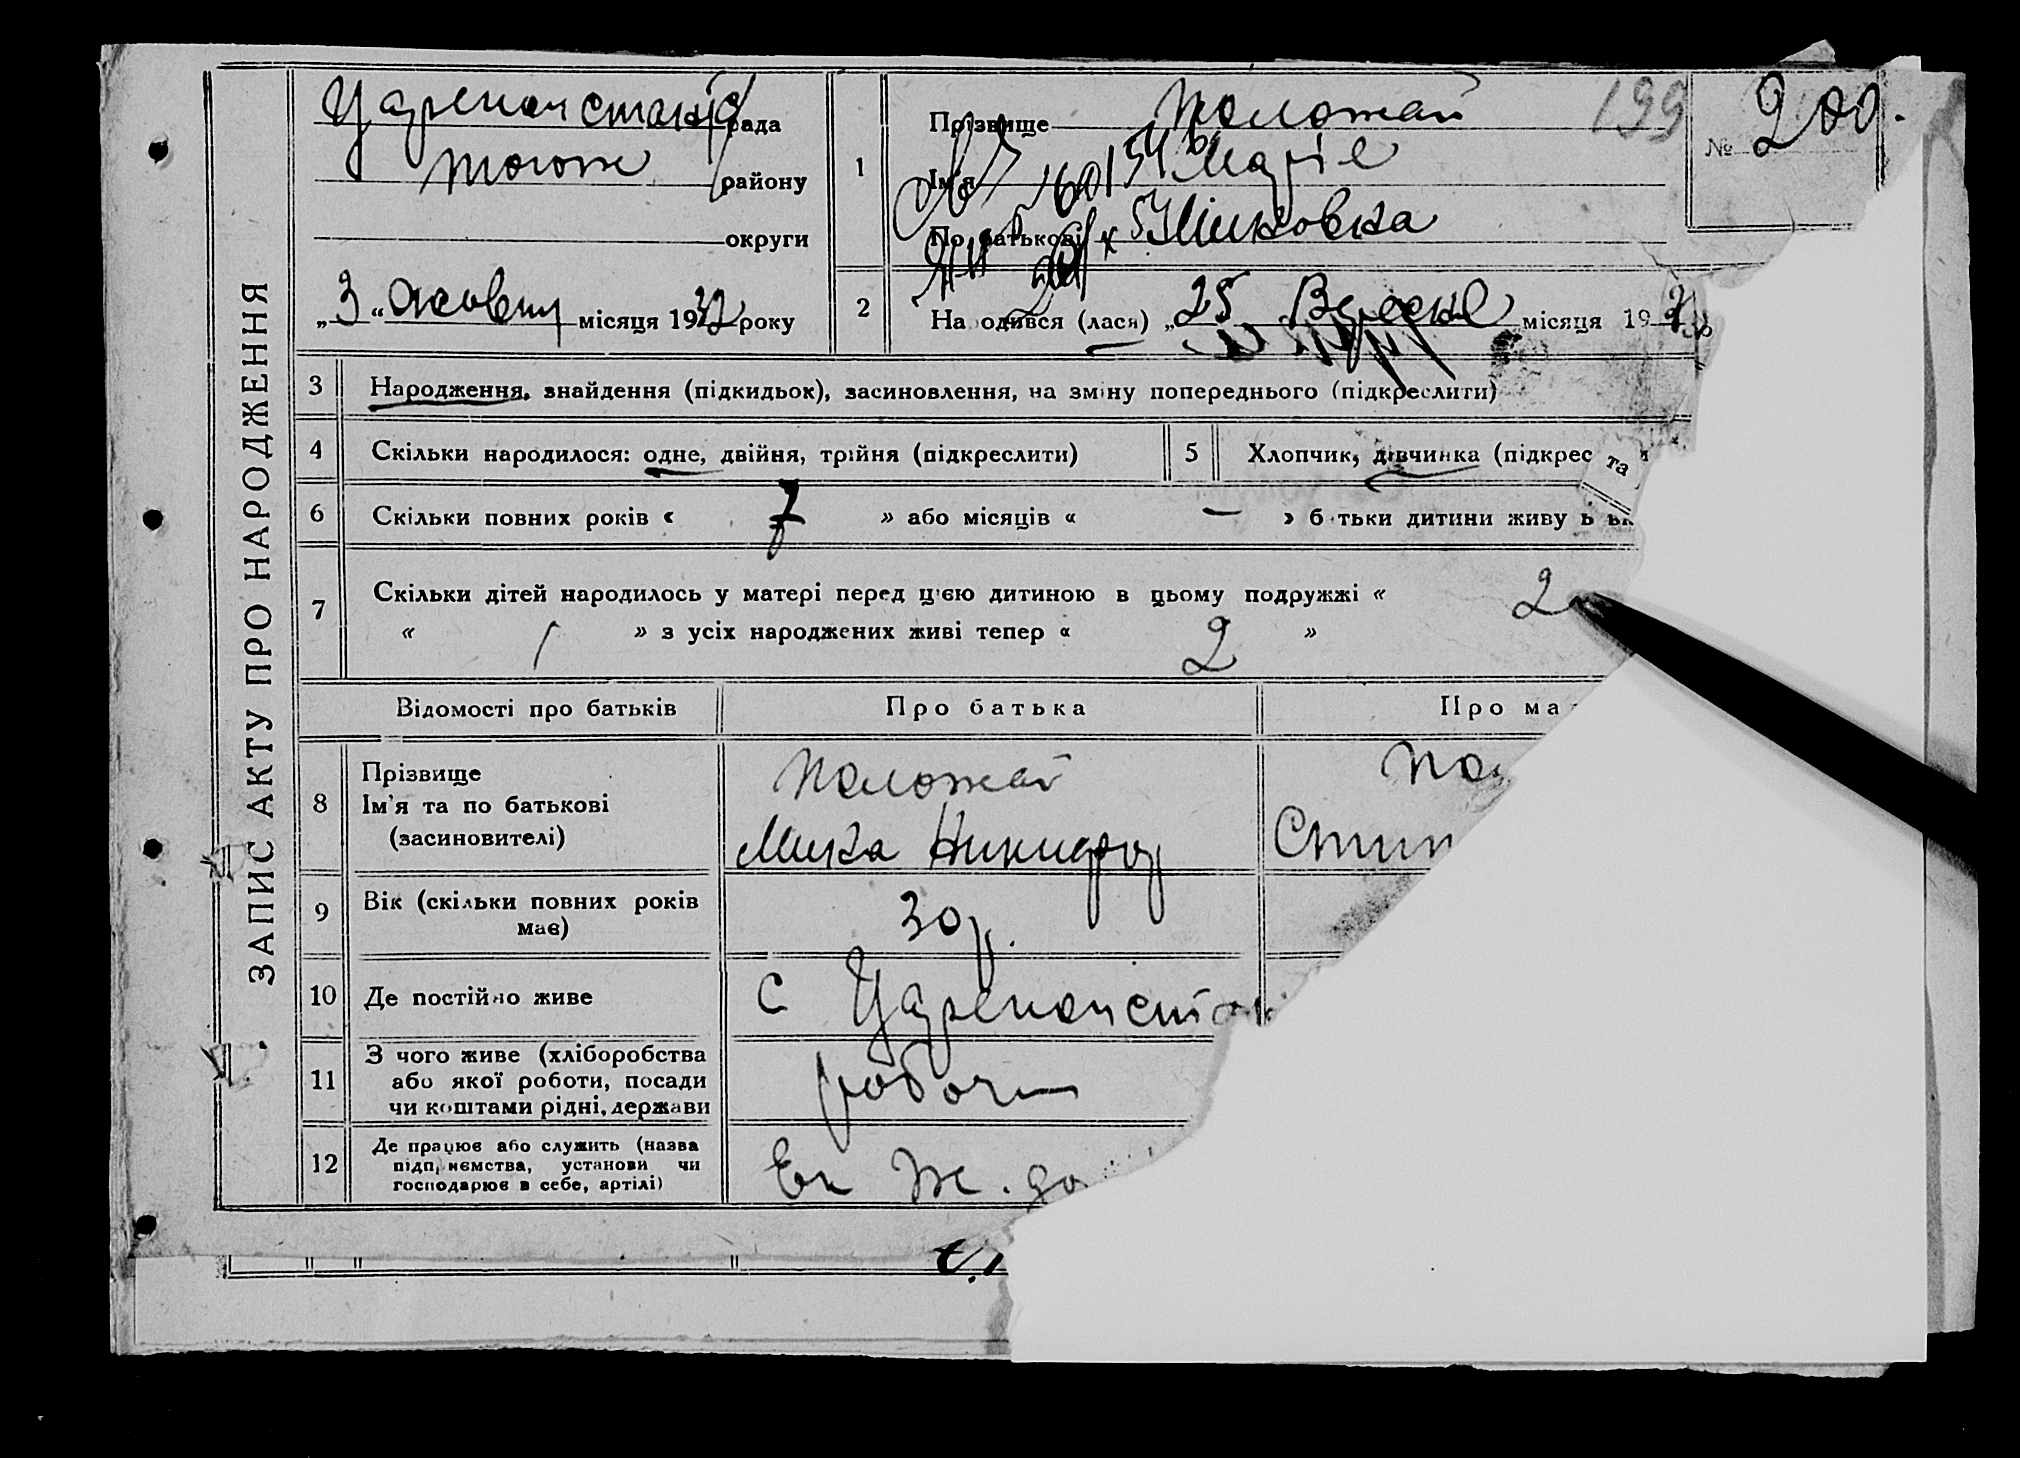 ЗАПИС АКТУ ПРО НАРОДЖЕННЯ
рада
тогож району
округи
„3“ Жовтня місяця 1932 року
1
Прізвище Положай
Ім'я Марія
По батькові Миковна
199
№ 200.
2
Народився (лася) „25 Вересня місяця 193
3
Народження, знайдення (підкидьок), засиновлення, на зміну попереднього (підкреслити)
4
Скільки народилося: одне, двійня, трійня (підкреслити)
5
Хлопчик, дівчинка (підкрес
та
6
Скільки повних років « 7 » або місяців « — » батьки дитини живуть
7
Скільки дітей народилось у матері перед цією дитиною в цьому подружжі « 2
« / » з усіх народжених живі тепер « 2 »
Відомості про батьків
Про батька
Про ма
8
Прізвище
Ім'я та по батькові
(засиновителі)
Положай
Мика Никифор
По
Стип
9
Вік (скільки повних років
має)
30 р.
10
Де постійно живе
с
11
З чого живе (хліборобства
або якої роботи, посади
чи коштами рідні, держави
робоч
12
Де працює або служить (назва
підприємства, установи чи
господарює в себе, артілі)
Ек Ж. до